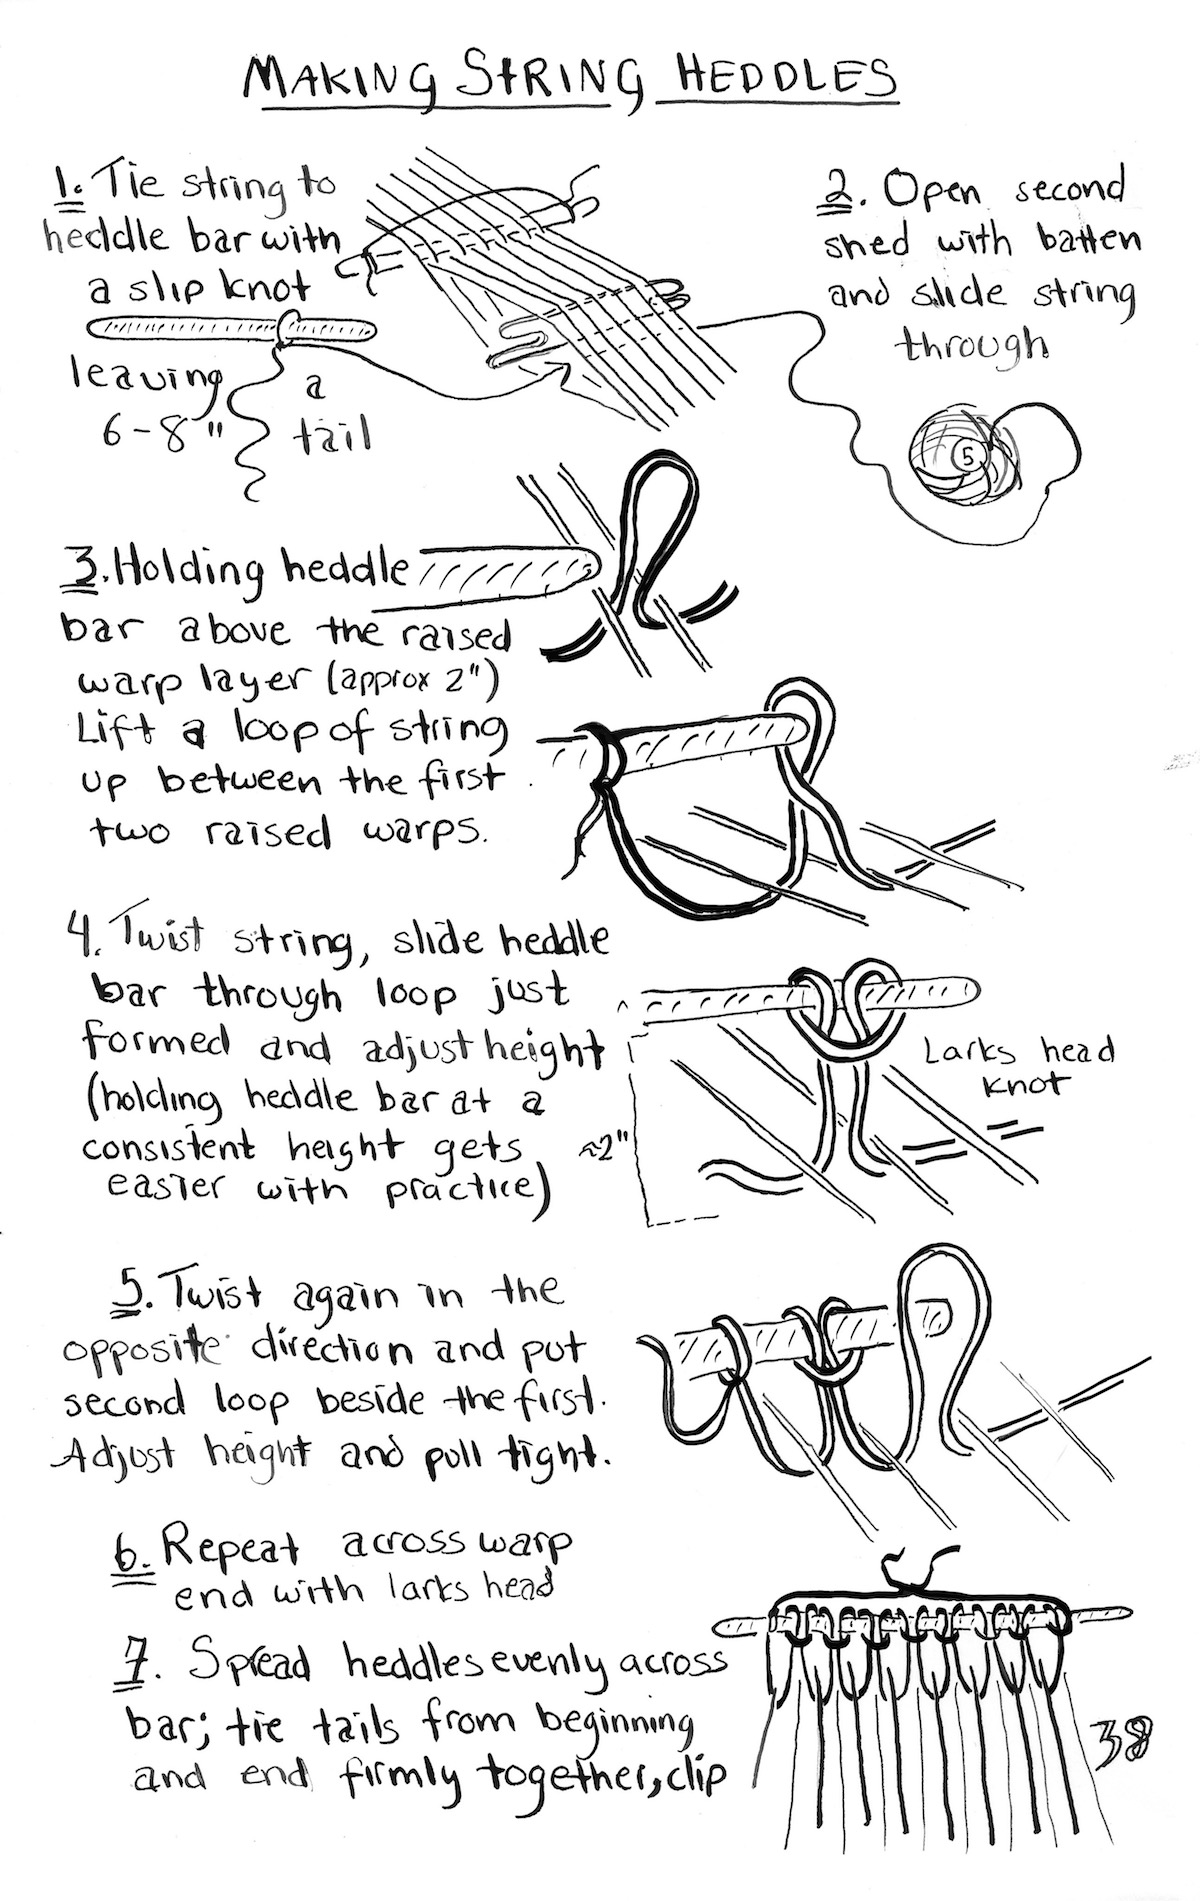 MAKING STRING HEDDLES
1. Tie string to
heddle bar with
a slip knot
leaving a
6-8" tail
2. Open second
shed with batten
and slide string
through
5
3. Holding heddle
bar above the raised
warp layer (approx 2")
Lift a loop of string
up between the first
two raised warps.
4. Twist string, slide heddle
bar through loop just
formed and adjust height
(holding heddle bar at a
consistent height gets
easier with practice)
≈2"
Larks head
knot
5. Twist again in the
opposite direction and put
second loop beside the first.
Adjust height and pull tight.
6. Repeat across warp
end with larks head
7. Spread heddles evenly across
bar; tie tails from beginning
and end firmly together, clip
38